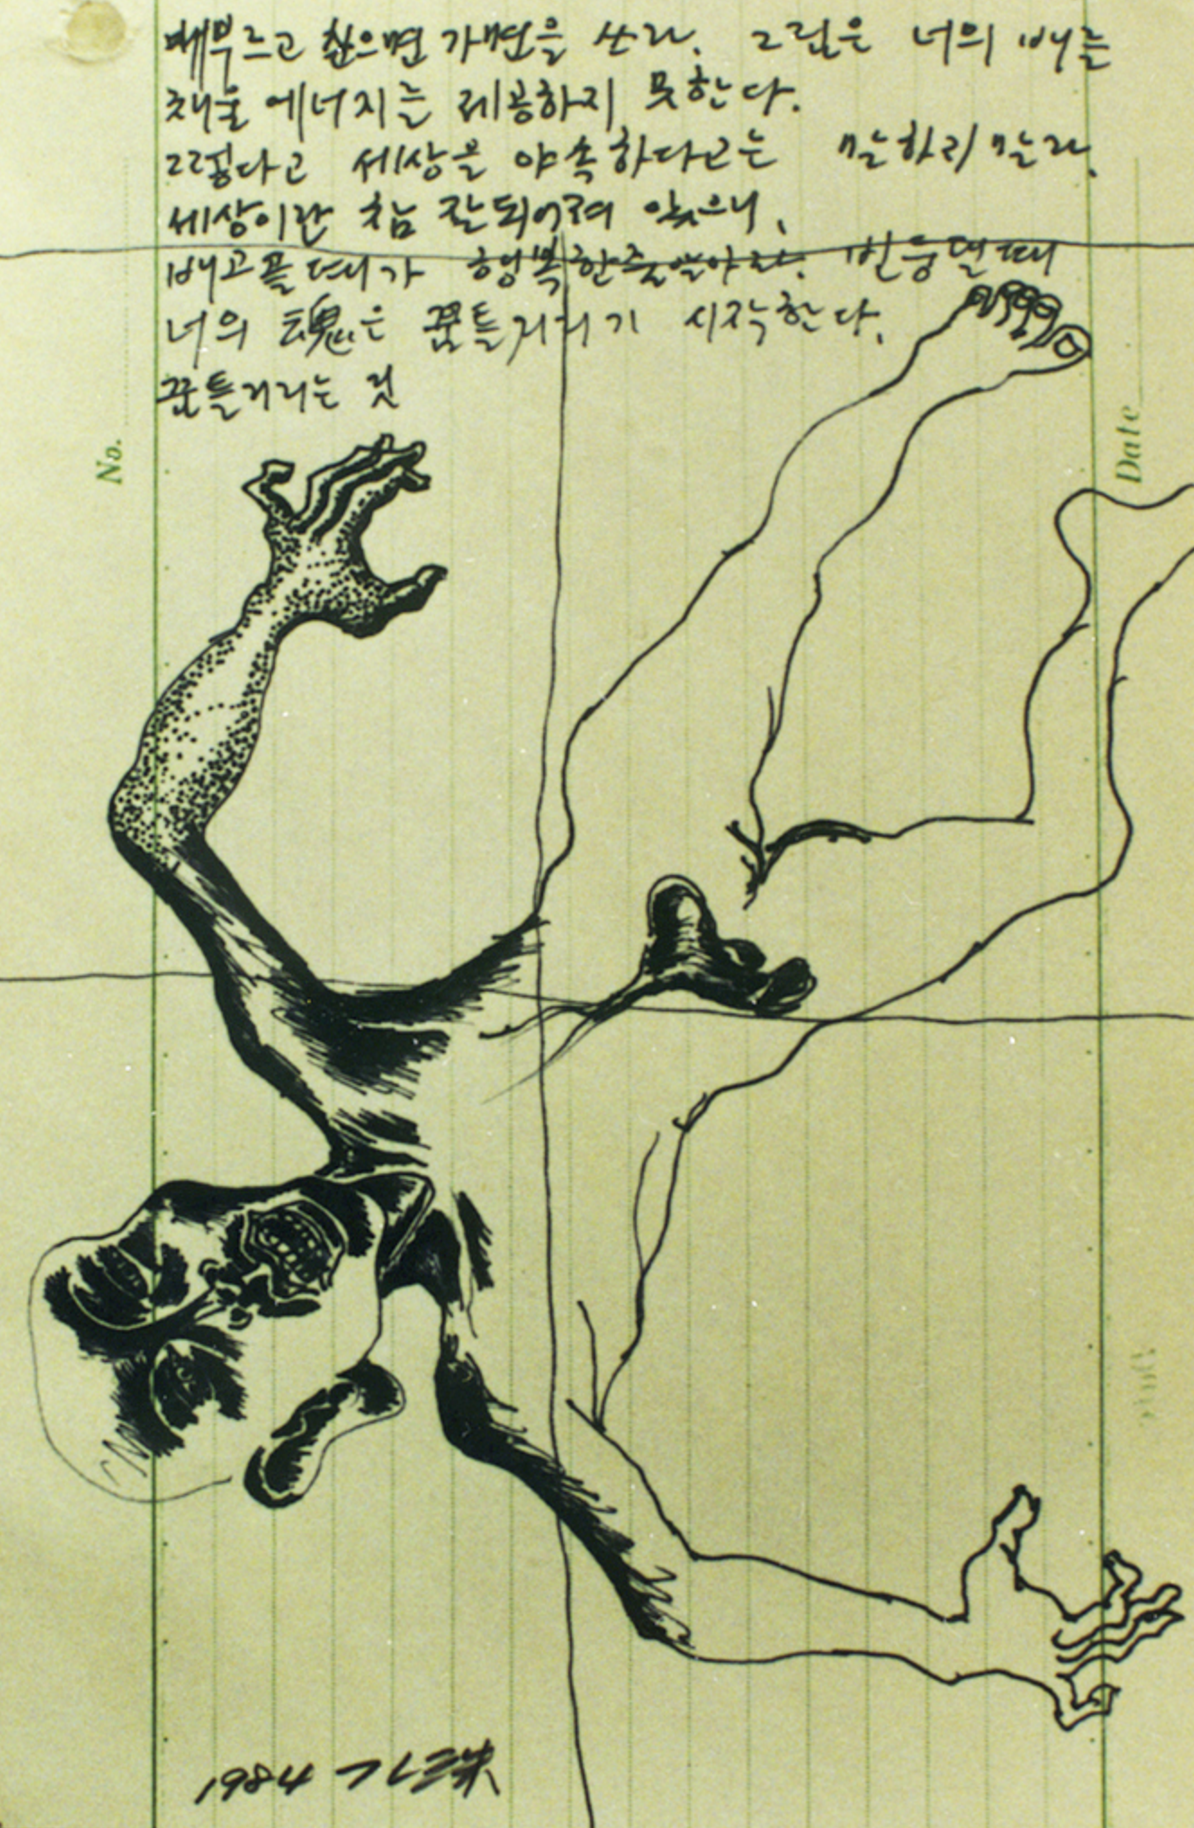 배부르고 싶으면 가면을 쓰라. 그림은 너의 배를
채울 에너지를 제공하지 못한다.
그렇다고 세상을 야속하다고는 말하지 말라.
세상이란 참 잘되어져 있으니,
배고플때가 행복한줄알아라. 빈둥댈때
너의 魂은 꿈틀거리기 시작한다.
꿈틀거리는 것
No.
Date
1984